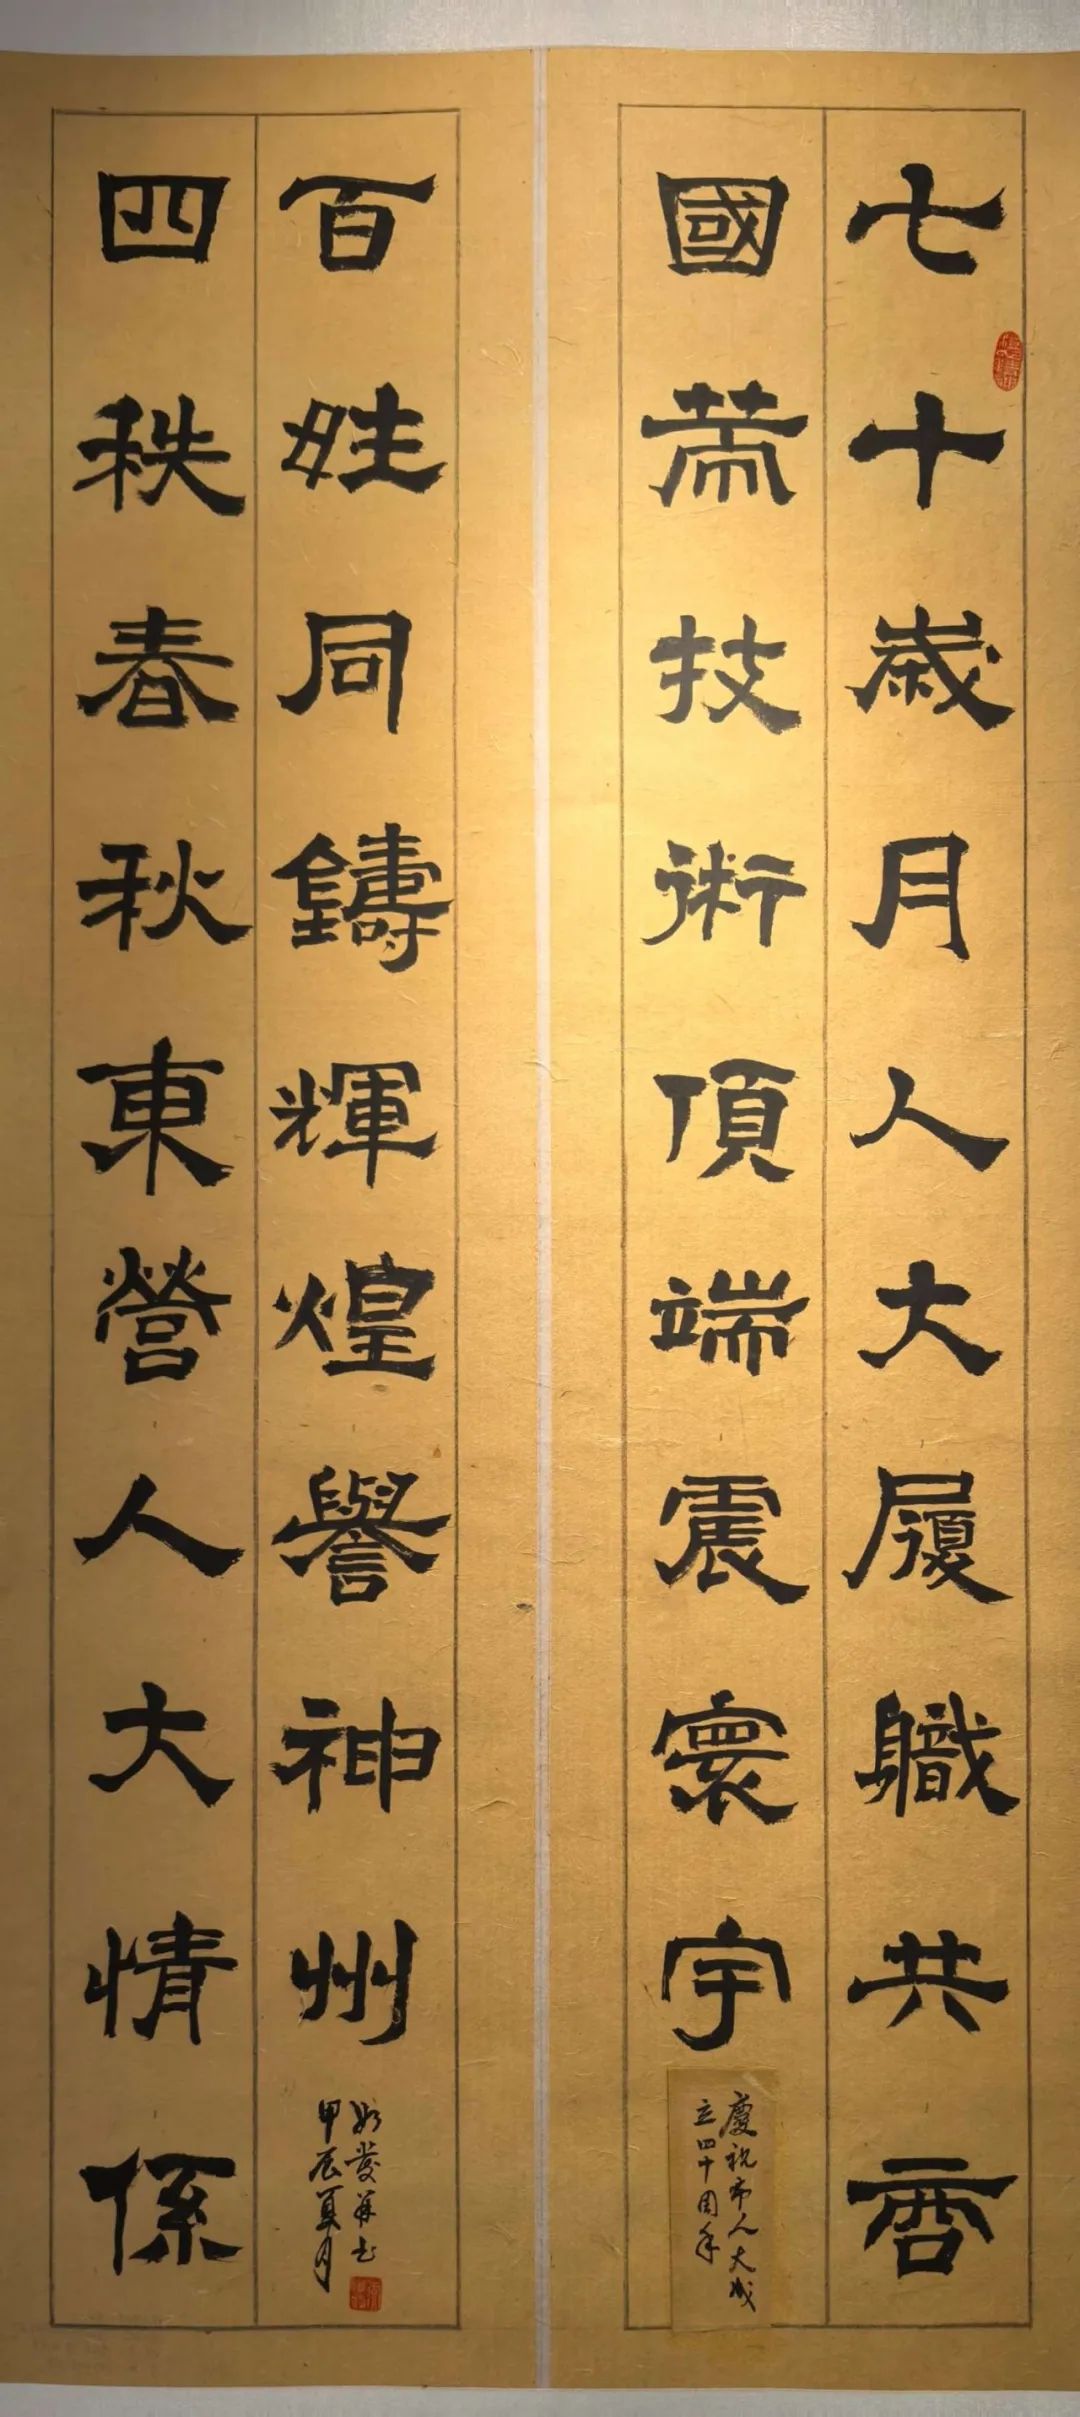 七十歲月人大履職共商
國策技術頂端震寰宇
慶祝市人大成
立四十周年
四秩春秋東營人大情係
百姓同鑄輝煌譽神州
并書
甲辰夏月